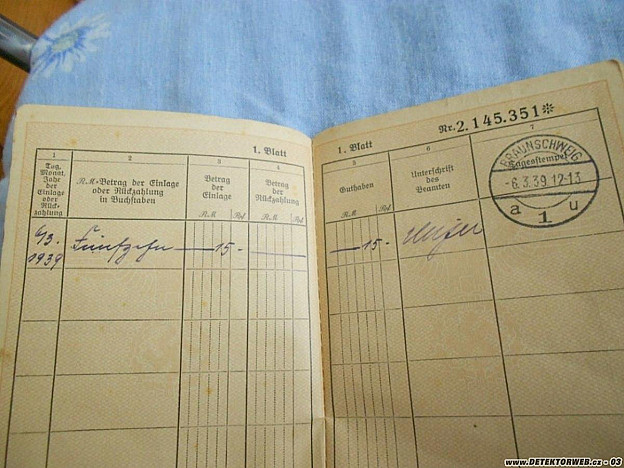 1. Blatt
1
2
3
4
Tag, Monat, Jahr der Einlage oder Rück-zahlung
R.M-Betrag der Einlage oder Rückzahlung in Buchstaben
Betrag der Einlage
Betrag der Rückzahlung
R.M Rpf
R.M Rpf
6/3. 1939
Fünfzehn
15-
1. Blatt
Nr. 2.145.351*
5
6
7
Guthaben
Unterschrift des Beamten
Tagesstempel
R.M Rpf
15-
BRAUNSCHWEIG
-6.3.39.12-13
a 1 u
www.DETEKTORWEB.cz - 03